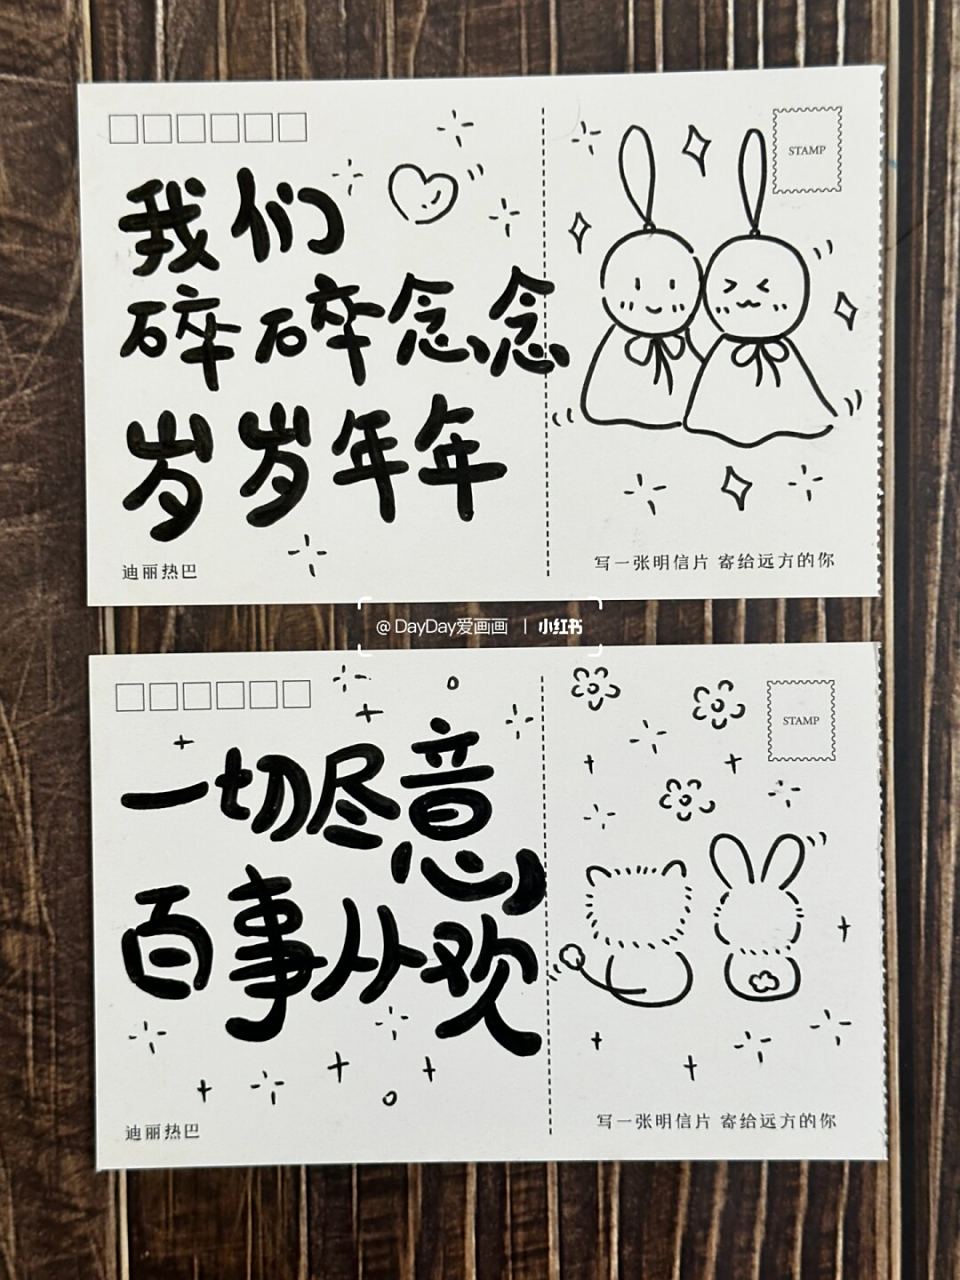 我们
碎碎念念
岁岁年年
迪丽热巴
STAMP
写一张明信片 寄给远方的你
@DayDay爱画画 | 小红书
一切尽意
百事从欢
迪丽热巴
STAMP
写一张明信片 寄给远方的你